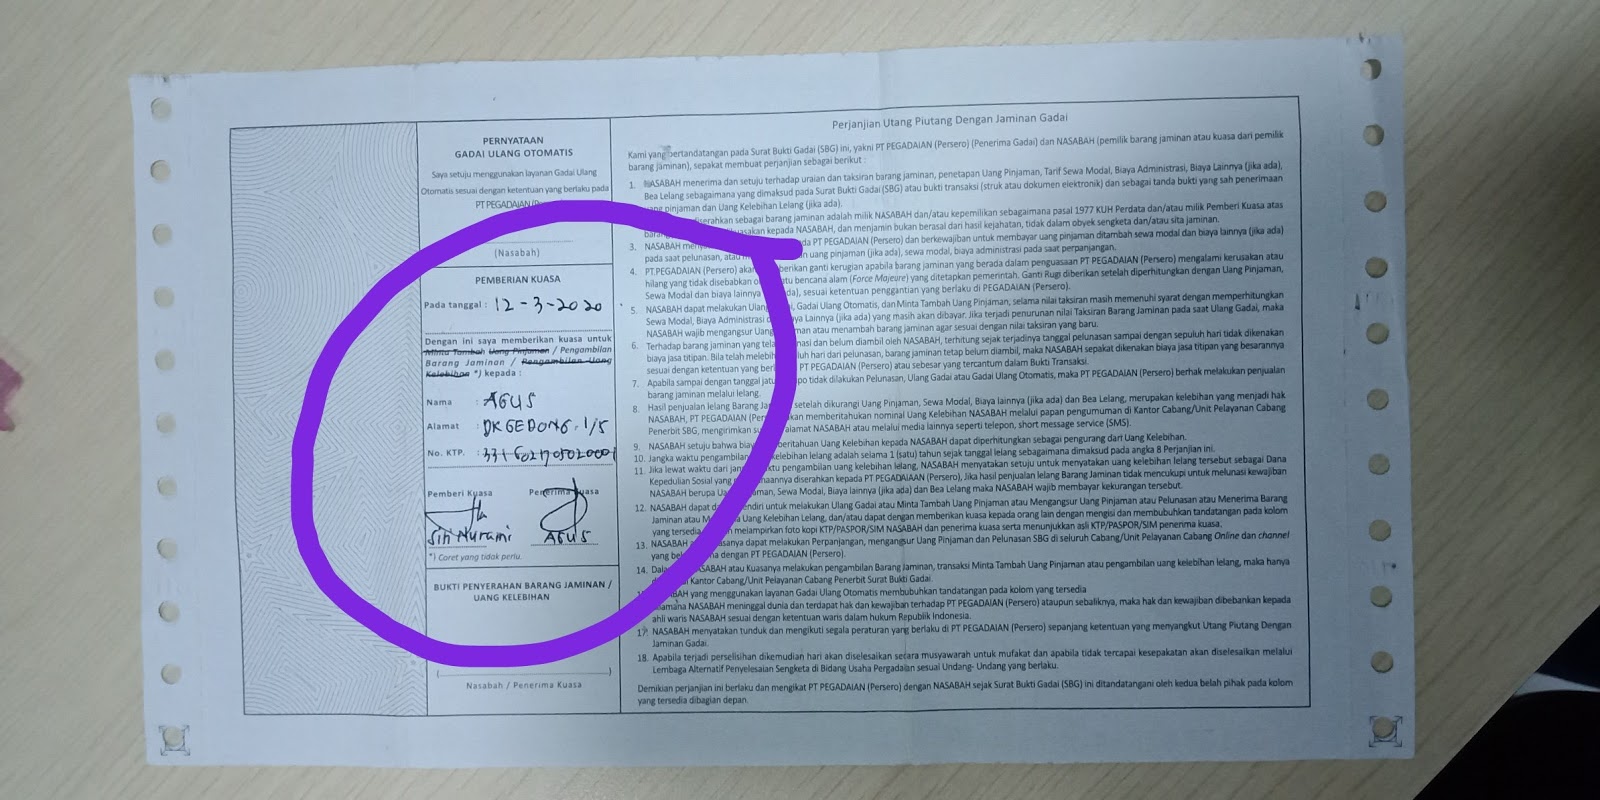 PERNYATAAN
GADAI ULANG OTOMATIS
Saya setuju menggunakan layanan Gadai Ulang
Otomatis sesuai dengan ketentuan yang berlaku pada
PT PEGADAIAN
(Nasabah)
PEMBERIAN KUASA
Pada tanggal : 12-3-2020
Dengan ini saya memberikan kuasa untuk
Minta Tambah Uang Pinjaman / Pengambilan
Barang Jaminan / Pengambilan Uang
Kelebihan *) kepada :
Nama : AGUS
Alamat : DK GEDONG. 1/5
No. KTP. :
Pemberi Kuasa Penerima Kuasa
Siti Nurami AGUS
*) Coret yang tidak perlu.
BUKTI PENYERAHAN BARANG JAMINAN /
UANG KELEBIHAN
(....................)
Nasabah / Penerima Kuasa
Perjanjian Utang Piutang Dengan Jaminan Gadai
Kami yang bertandatangan pada Surat Bukti Gadai (SBG) ini, yakni PT PEGADAIAN (Persero) (Penerima Gadai) dan NASABAH (pemilik barang jaminan atau kuasa dari pemilik
barang jaminan), sepakat membuat perjanjian sebagai berikut :
1. NASABAH menerima dan setuju terhadap uraian dan taksiran barang jaminan, penetapan Uang Pinjaman, Tarif Sewa Modal, Biaya Administrasi, Biaya Lainnya (jika ada),
Bea Lelang sebagaimana yang dimaksud pada Surat Bukti Gadai (SBG) atau bukti transaksi (struk atau dokumen elektronik) dan sebagai tanda bukti yang sah penerimaan
uang pinjaman dan Uang Kelebihan Lelang (jika ada).
diserahkan sebagai barang jaminan adalah milik NASABAH dan/atau kepemilikan sebagaimana pasal 1977 KUH Perdata dan/atau milik Pemberi Kuasa atas
barang kepada NASABAH, dan menjamin bukan berasal dari hasil kejahatan, tidak dalam obyek sengketa dan/atau sita jaminan.
3. NASABAH PT PEGADAIAN (Persero) dan berkewajiban untuk membayar uang pinjaman ditambah sewa modal dan biaya lainnya (jika ada)
pada saat pelunasan, atau uang pinjaman (jika ada), sewa modal, biaya administrasi pada saat perpanjangan.
4. PT.PEGADAIAN (Persero) akan ganti kerugian apabila barang jaminan yang berada dalam penguasaan PT PEGADAIAN (Persero) mengalami kerusakan atau
hilang yang tidak disebabkan bencana alam (Force Majeure) yang ditetapkan pemerintah. Ganti Rugi diberikan setelah diperhitungkan dengan Uang Pinjaman,
Sewa Modal dan biaya lainnya sesuai ketentuan penggantian yang berlaku di PEGADAIAN (Persero).
5. NASABAH dapat melakukan Gadai Ulang Otomatis, dan Minta Tambah Uang Pinjaman, selama nilai taksiran masih memenuhi syarat dengan memperhitungkan
Sewa Modal, Biaya Administrasi Lainnya (jika ada) yang masih akan dibayar. Jika terjadi penurunan nilai Taksiran Barang Jaminan pada saat Ulang Gadai, maka
NASABAH wajib mengangsur Uang atau menambah barang jaminan agar sesuai dengan nilai taksiran yang baru.
6. Terhadap barang jaminan yang dan belum diambil oleh NASABAH, terhitung sejak terjadinya tanggal pelunasan sampai dengan sepuluh hari tidak dikenakan
biaya jasa titipan. Bila telah hari dari pelunasan, barang jaminan tetap belum diambil, maka NASABAH sepakat dikenakan biaya jasa titipan yang besarannya
sesuai dengan ketentuan yang PT PEGADAIAN (Persero) atau sebesar yang tercantum dalam Bukti Transaksi.
7. Apabila sampai dengan tanggal tidak dilakukan Pelunasan, Ulang Gadai atau Gadai Ulang Otomatis, maka PT PEGADAIAN (Persero) berhak melakukan penjualan
barang jaminan melalui lelang.
8. Hasil penjualan lelang Barang setelah dikurangi Uang Pinjaman, Sewa Modal, Biaya lainnya (jika ada) dan Bea Lelang, merupakan kelebihan yang menjadi hak
NASABAH, PT PEGADAIAN memberitahukan nominal Uang Kelebihan NASABAH melalui papan pengumuman di Kantor Cabang/Unit Pelayanan Cabang
Penerbit SBG, mengirimkan alamat NASABAH atau melalui media lainnya seperti telepon, short message service (SMS).
9. NASABAH setuju bahwa Uang Kelebihan kepada NASABAH dapat diperhitungkan sebagai pengurang dari Uang Kelebihan.
10. Jangka waktu pengambilan kelebihan lelang adalah selama 1 (satu) tahun sejak tanggal lelang sebagaimana dimaksud pada angka 8 Perjanjian ini.
11. Jika lewat waktu dari pengambilan uang kelebihan lelang, NASABAH menyatakan setuju untuk menyatakan uang kelebihan lelang tersebut sebagai Dana
Kepedulian Sosial yang diserahkan kepada PT PEGADAIAAN (Persero), Jika hasil penjualan lelang Barang Jaminan tidak mencukupi untuk melunasi kewajiban
NASABAH berupa Sewa Modal, Biaya lainnya (jika ada) dan Bea Lelang maka NASABAH wajib membayar kekurangan tersebut.
12. NASABAH dapat untuk melakukan Ulang Gadai atau Minta Tambah Uang Pinjaman atau Mengangsur Uang Pinjaman atau Pelunasan atau Menerima Barang
Jaminan atau Uang Kelebihan Lelang, dan/atau dapat dengan memberikan kuasa kepada orang lain dengan mengisi dan membubuhkan tandatangan pada kolom
yang tersedia melampirkan foto kopi KTP/PASPOR/SIM NASABAH dan penerima kuasa serta menunjukkan asli KTP/PASPOR/SIM penerima kuasa.
13. NASABAH dapat melakukan Perpanjangan, mengangsur Uang Pinjaman dan Pelunasan SBG di seluruh Cabang/Unit Pelayanan Cabang Online dan channel
yang dengan PT PEGADAIAN (Persero).
14. NASABAH atau Kuasanya melakukan pengambilan Barang Jaminan, transaksi Minta Tambah Uang Pinjaman atau pengambilan uang kelebihan lelang, maka hanya
Kantor Cabang/Unit Pelayanan Cabang Penerbit Surat Bukti Gadai.
yang menggunakan layanan Gadai Ulang Otomatis membubuhkan tandatangan pada kolom yang tersedia
NASABAH meninggal dunia dan terdapat hak dan kewajiban terhadap PT PEGADAIAN (Persero) ataupun sebaliknya, maka hak dan kewajiban dibebankan kepada
ahli waris NASABAH sesuai dengan ketentuan waris dalam hukum Republik Indonesia.
17. NASABAH menyatakan tunduk dan mengikuti segala peraturan yang berlaku di PT PEGADAIAN (Persero) sepanjang ketentuan yang menyangkut Utang Piutang Dengan
Jaminan Gadai.
18. Apabila terjadi perselisihan dikemudian hari akan diselesaikan secara musyawarah untuk mufakat dan apabila tidak tercapai kesepakatan akan diselesaikan melalui
Lembaga Alternatif Penyelesaian Sengketa di Bidang Usaha Pergadaian sesuai Undang- Undang yang berlaku.
Demikian perjanjian ini berlaku dan mengikat PT PEGADAIAN (Persero) dengan NASABAH sejak Surat Bukti Gadai (SBG) ini ditandatangani oleh kedua belah pihak pada kolom
yang tersedia dibagian depan.